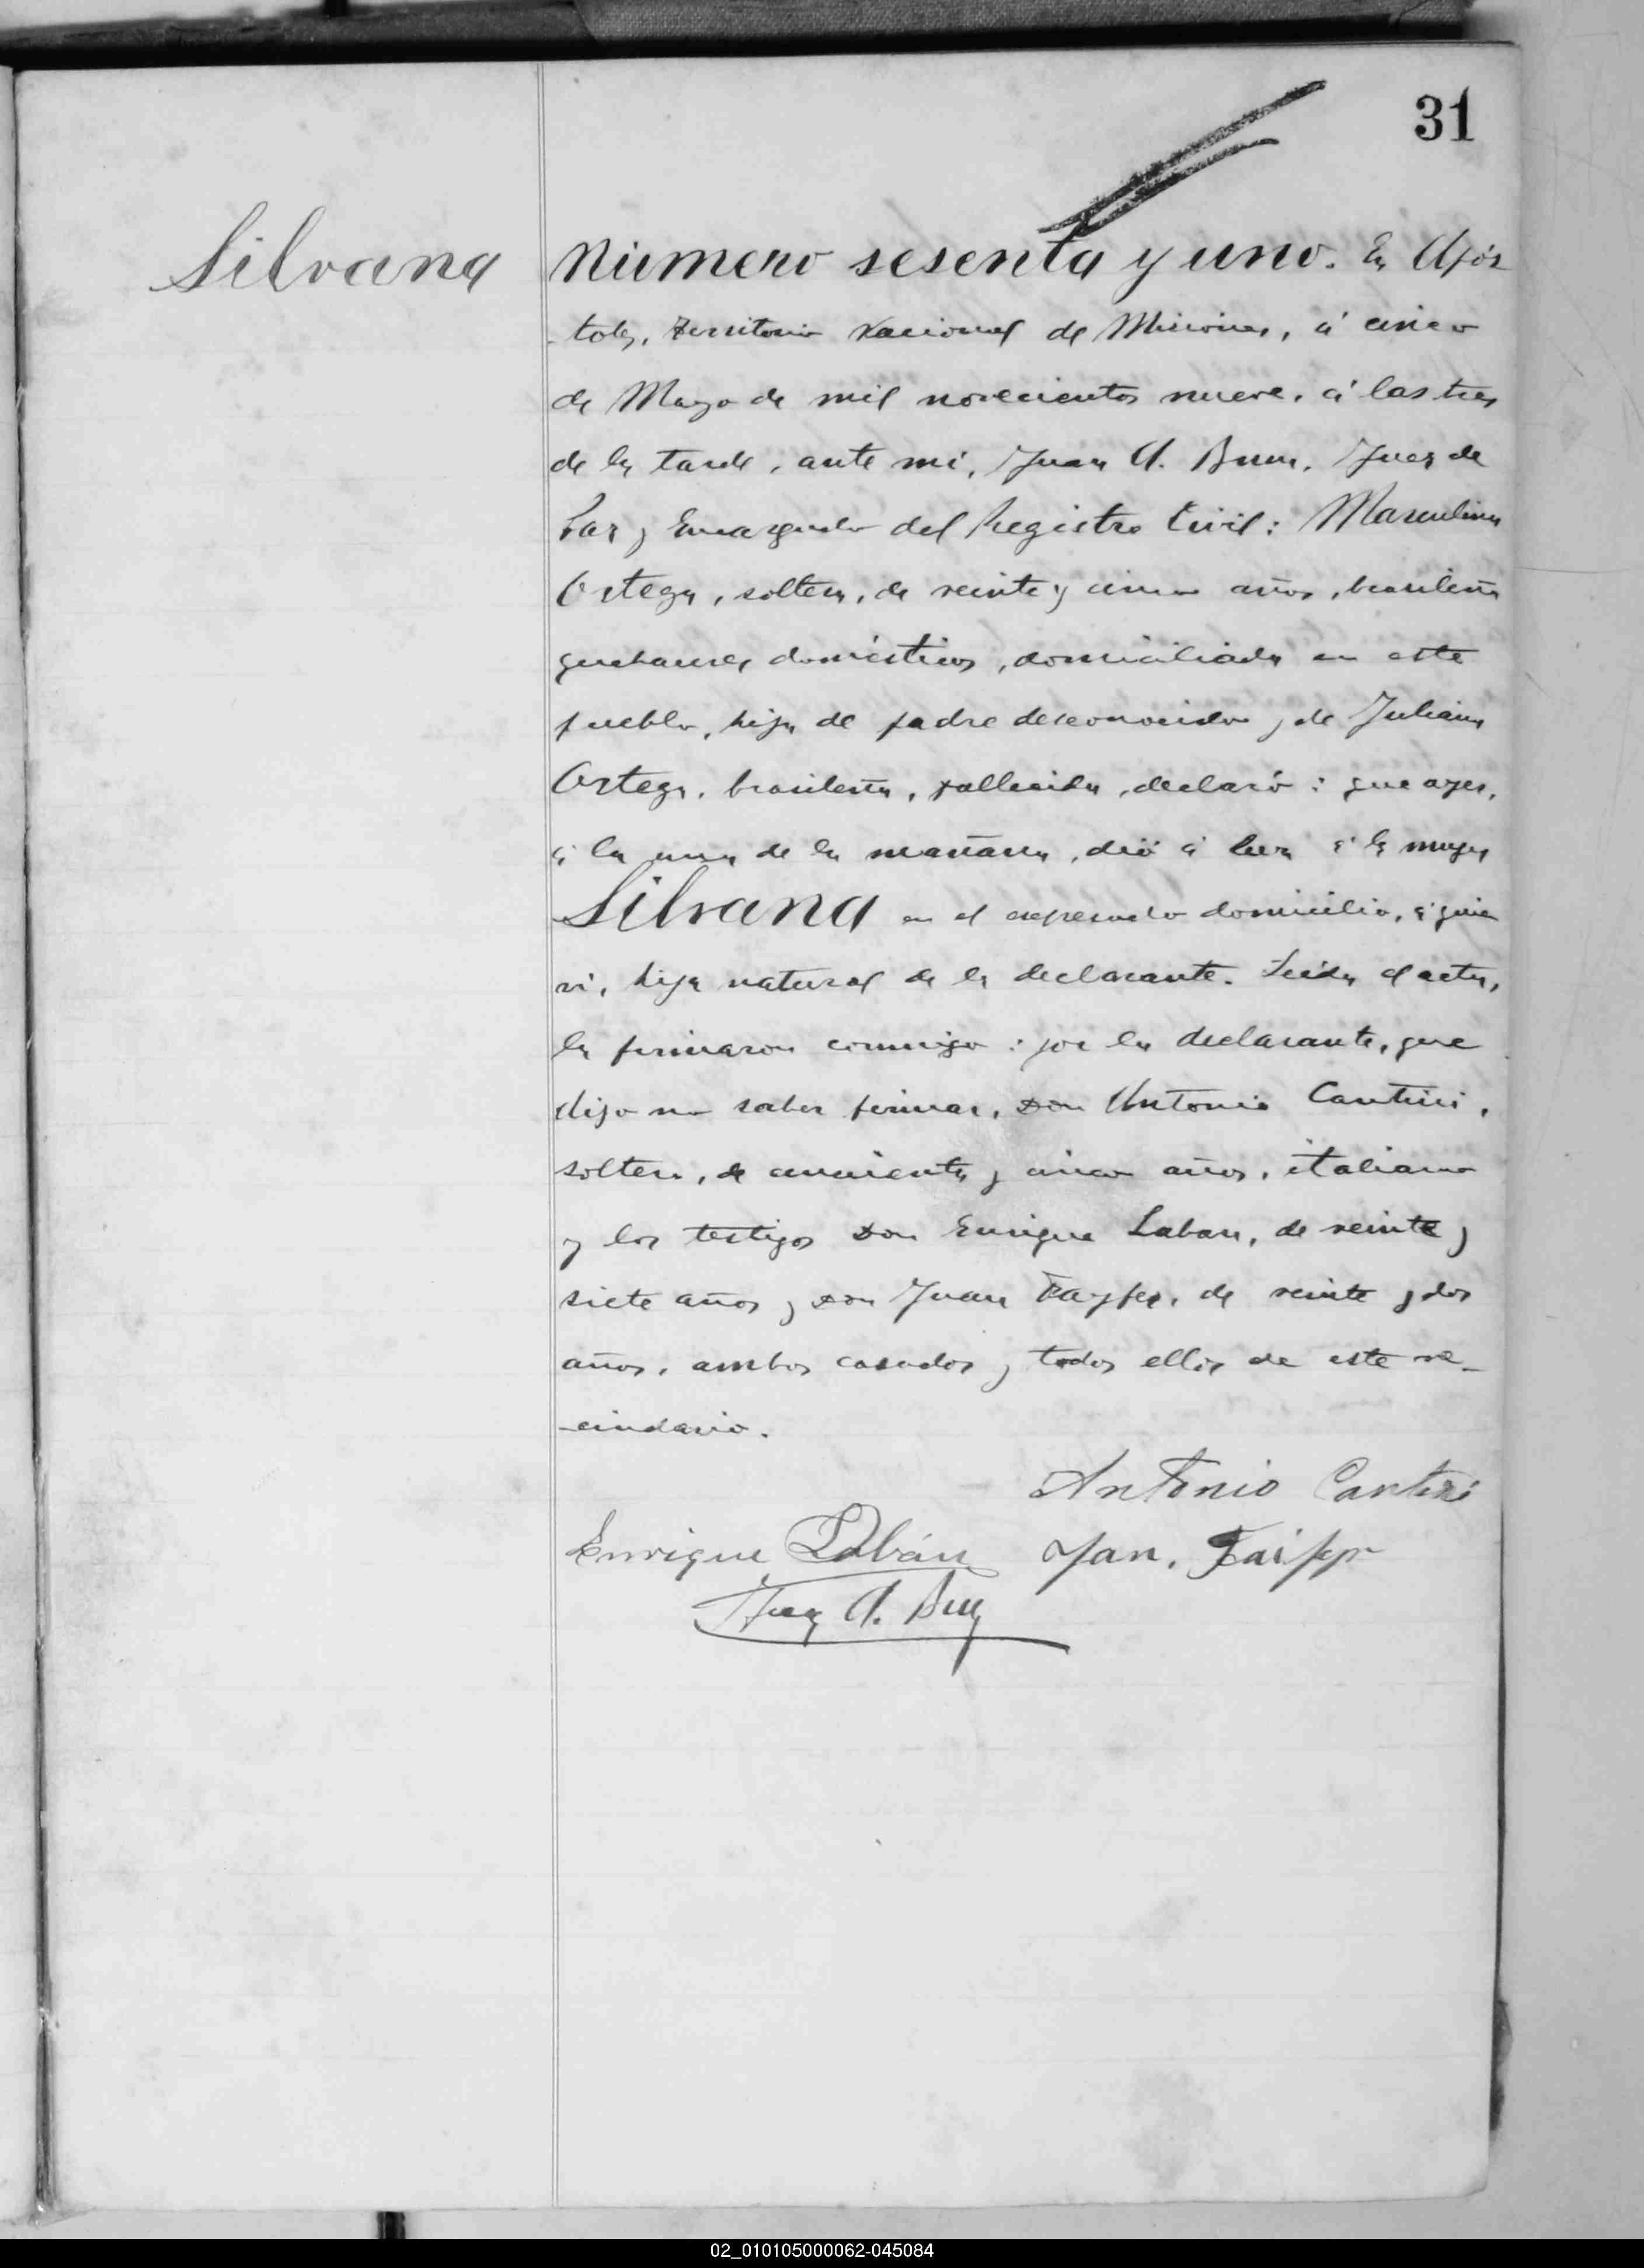 31
Silvana
Número sesenta y uno. En Após
-toles, Territorio Nacional de Misiones, á cinco
de Mayo de mil novecientos nueve, á las tres
de la tarde, ante mi, Juan A. Juez de
Paz y Encargado del Registro Civil: Masculina
Ortega, soltera, de veinte y cinco años, brasileña
quehaceres domésticos, domiciliada en este
pueblo, hija de padre desconocido y de Juliana
Ortega, brasileña, fallecida, declaró: que ayer,
á la una de la mañana, dió á luz á la mujer
Silvana en el expresado domicilio, á quien
ví, hija natural de la declarante. Leida el acta,
la firmaron conmigo: por la declarante, que
dijo no saber firmar, Don Antonio Cantini,
soltero, de cincuenta y cinco años, italiano
y los testigos Don Enrique Laban, de veinte y
siete años y Don Juan Fayfer, de veinte y dos
años, ambos casados y todos ellos de este ve-
-cindario.
Antonio Cantini
Enrique Labán Jan. Faifer
Juan A.
02_010105000062-045084